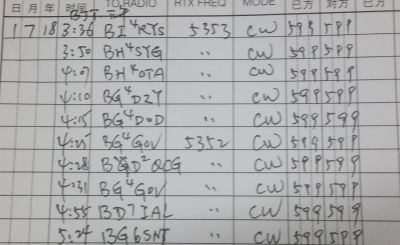 日 月 年 时间 TO RADIO RTX FREQ MODE 己方 对方 己方
BJT
1 7 18 3:36 BI4RYS 5353 CW 599 599
3:50 BH4SYG " CW 599 599
4:07 BH4OTA " CW 599 599
4:10 BG4DZY " CW 599 599
4:15 BG4DOD " CW 599 599
4:25 BG4GOV 5352 CW 599 599
4:28 BD2QCG " CW 599 599
4:31 BG4GOV " CW 599 599
4:55 BD7IAL " CW 599 599
5:24 BG6SNT " CW 599 599